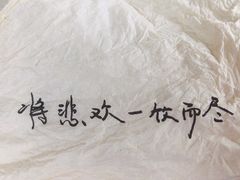 将悲欢一饮而尽